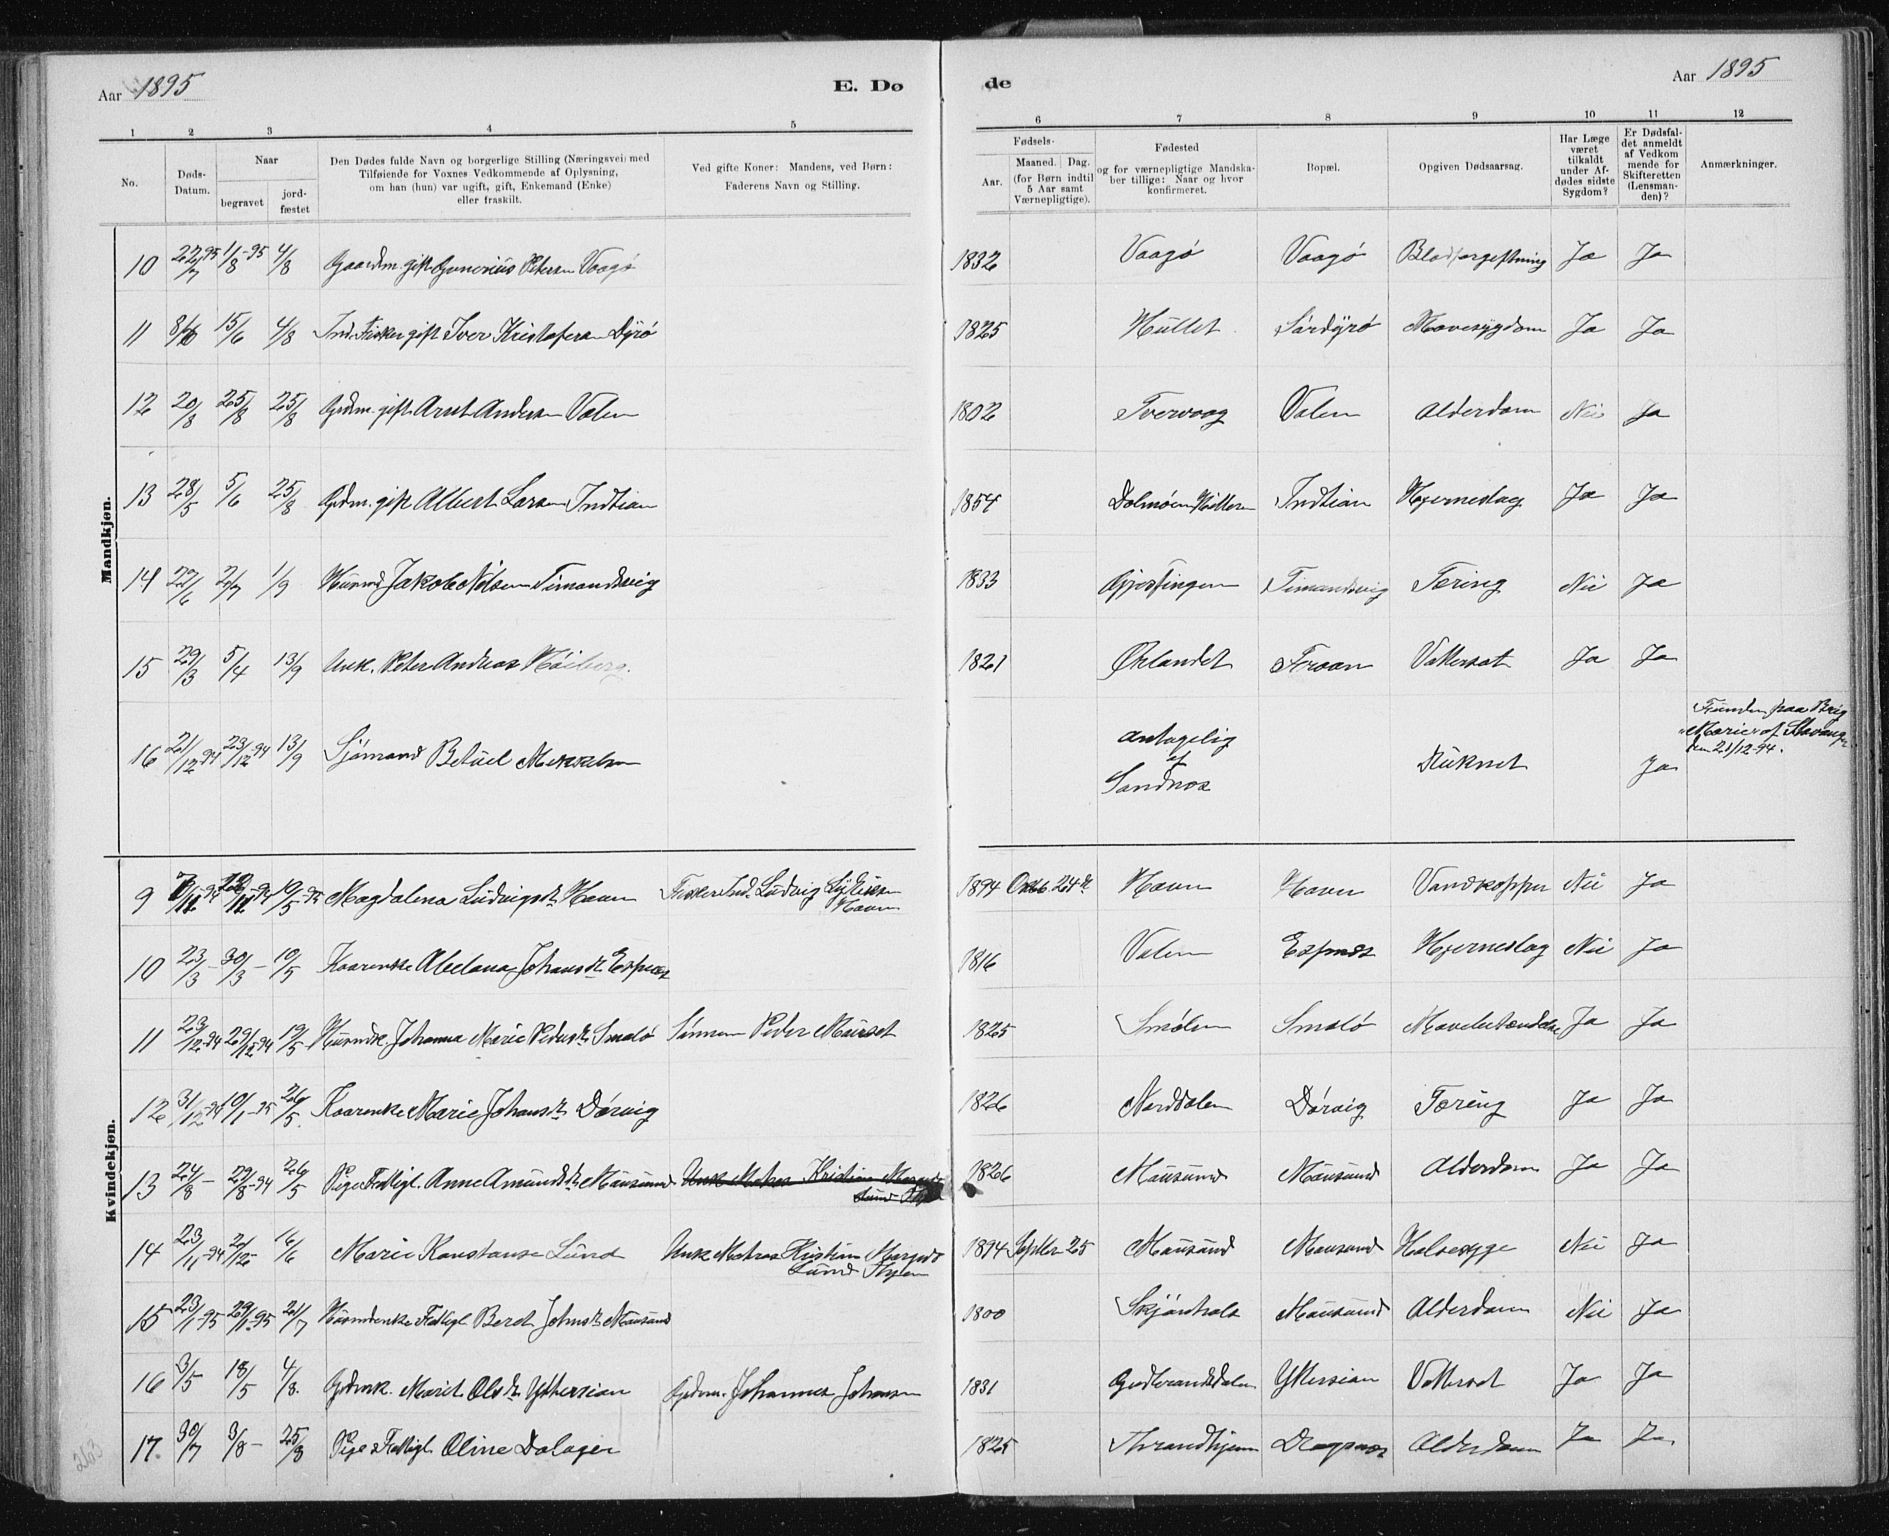 Aar 1895
E. Dø
de
Aar 1895
1 2 3 4 5
6 7 8 9 10 11 12
No.
Døds-
Datum.
Naar
begravet
jord-
fæstet
Den Dødes fulde Navn og borgerlige Stilling (Næringsvei) med
Tilføiende for Voxnes Vedkommende af Oplysning,
om han (hun) var ugift, gift, Enkemand (Enke)
eller fraskilt.
Ved gifte Koner: Mandens, ved Børn:
Faderens Navn og Stilling.
Fødsels-
Aar.
Maaned. Dag.
(for Børn indtil
5 Aar samt
Værnepligtige).
Fødested
og for værnepligtige Mandska-
ber tillige: Naar og hvor
konfirmeret.
Bopæl.
Opgiven Dødsaarsag.
Har Læge
været
tilkaldt
under Af-
dødes sidste
Sygdom?
Er Dødsfal-
det anmeldt
af Vedkom
mende for
Skifteretten
(Lensman-
den)?
Anmærkninger.
Mandkjøn.
10 22/7 95 1/8-95 4/8 Gaardm. gift Gunerius Petersen Vaagø 1832 Vaagø Vaagø Blodforgiftning Ja Ja
11 15/6 4/8 Ind. Fisker gift Iver Kristofersen Dyrø 1825 Hullet Sørdyrø Mavesygdom Ja Ja
12 20/8 25/8 25/8 Grdm. gift Arnt Andersen Valen 1802 Tvervaag Valen Alderdom Nei Ja
13 28/5 5/6 25/8 Grdm. gift Albert Larsen Indtian 1854 Dolmøen Hitteren Indtian Hjerneslag Ja Ja
14 22/6 2/7 1/9 Huusmd Jakob Nilsen Simandsvig 1833 Gjæsingen Simandsvig Tæring Nei Ja
15 29/3 5/4 13/9 Unk. Peter Andreas Høiberg 1821 Ørlandet Froan Vattersot Ja Ja
16 21/12 94 23/12 94 13/9 Sjømand Betuel Mikkelsen antagelig af Sandnæs Druknet Ja Funden paa Brig
"Marie" af Stavanger
den 21/12-94.
Kvindekjøn.
9 10/5-95 Magdalena Ludvigsdtr Havn Fisker Ind. Ludvig Havn 1894 Oktb. 24de Havn Havn Vandkopper Nei Ja
10 23/3- 30/3- 10/5 Kaarenke Abelana Johansdtr Espnæs 1816 Valen Espnæs Hjerneslag Nei Ja
11 23/12-94 29/12-94 19/5 Huusmdk. Johanna Marie Pedersdtr Smalø Sønnen Peder Maurset 1825 Smølen Smalø Mavebetændelse Ja Ja
12 31/12 94 10/1-95 26/5 Kaarenke Marie Johansdtr Dørvig 1826 Norddalen Dørvig Tæring Ja Ja
13 24/8- 29/8-94 26/5 Pige Fattigl. Anne Amundsdtr Mausund 1826 Mausund Mausund Alderdom Ja Ja
14 23/11-94 2/12- 16/6 Marie Konstanse Lund Unk Matros Kristian Lund 1894 Septbr 25 Mausund Mausund Halssyge Nei Ja
15 23/1-95 29/1-95 21/7 Huusmdenke Fattigl. Beret Johnsdtr Mausund 1800 Skjønhals Mausund Alderdom Nei Ja
16 3/5 18/5 4/8. Grdmk. Marit Olsdtr Yttersian Grdm. Johannes Johansen 1831 Gudbrandsdalen Yttersian Vattersot Ja Ja
17. 30/7 3/8- 25/8 Pige Fattigl. Oline Dalager 1825 Throndhjem Dragsnæs Alderdom Ja Ja.
263